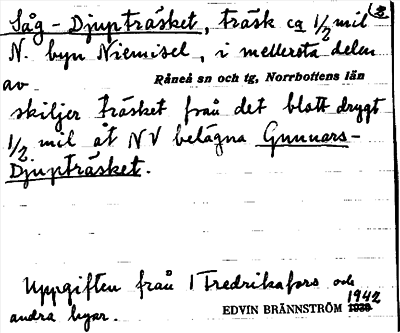 Såg-Djupträsket, träsk ca 1/2 mil
N. byn Niemisel, i mellersta delen
av Råneå sn och tg, Norrbottens län
skiljer träsket från det blott drygt
1/2 mil åt NV belägna Gunnars-
Djupträsket.
Uppgiften från Fredrikafors och
andra byar. EDVIN BRÄNNSTRÖM 1942